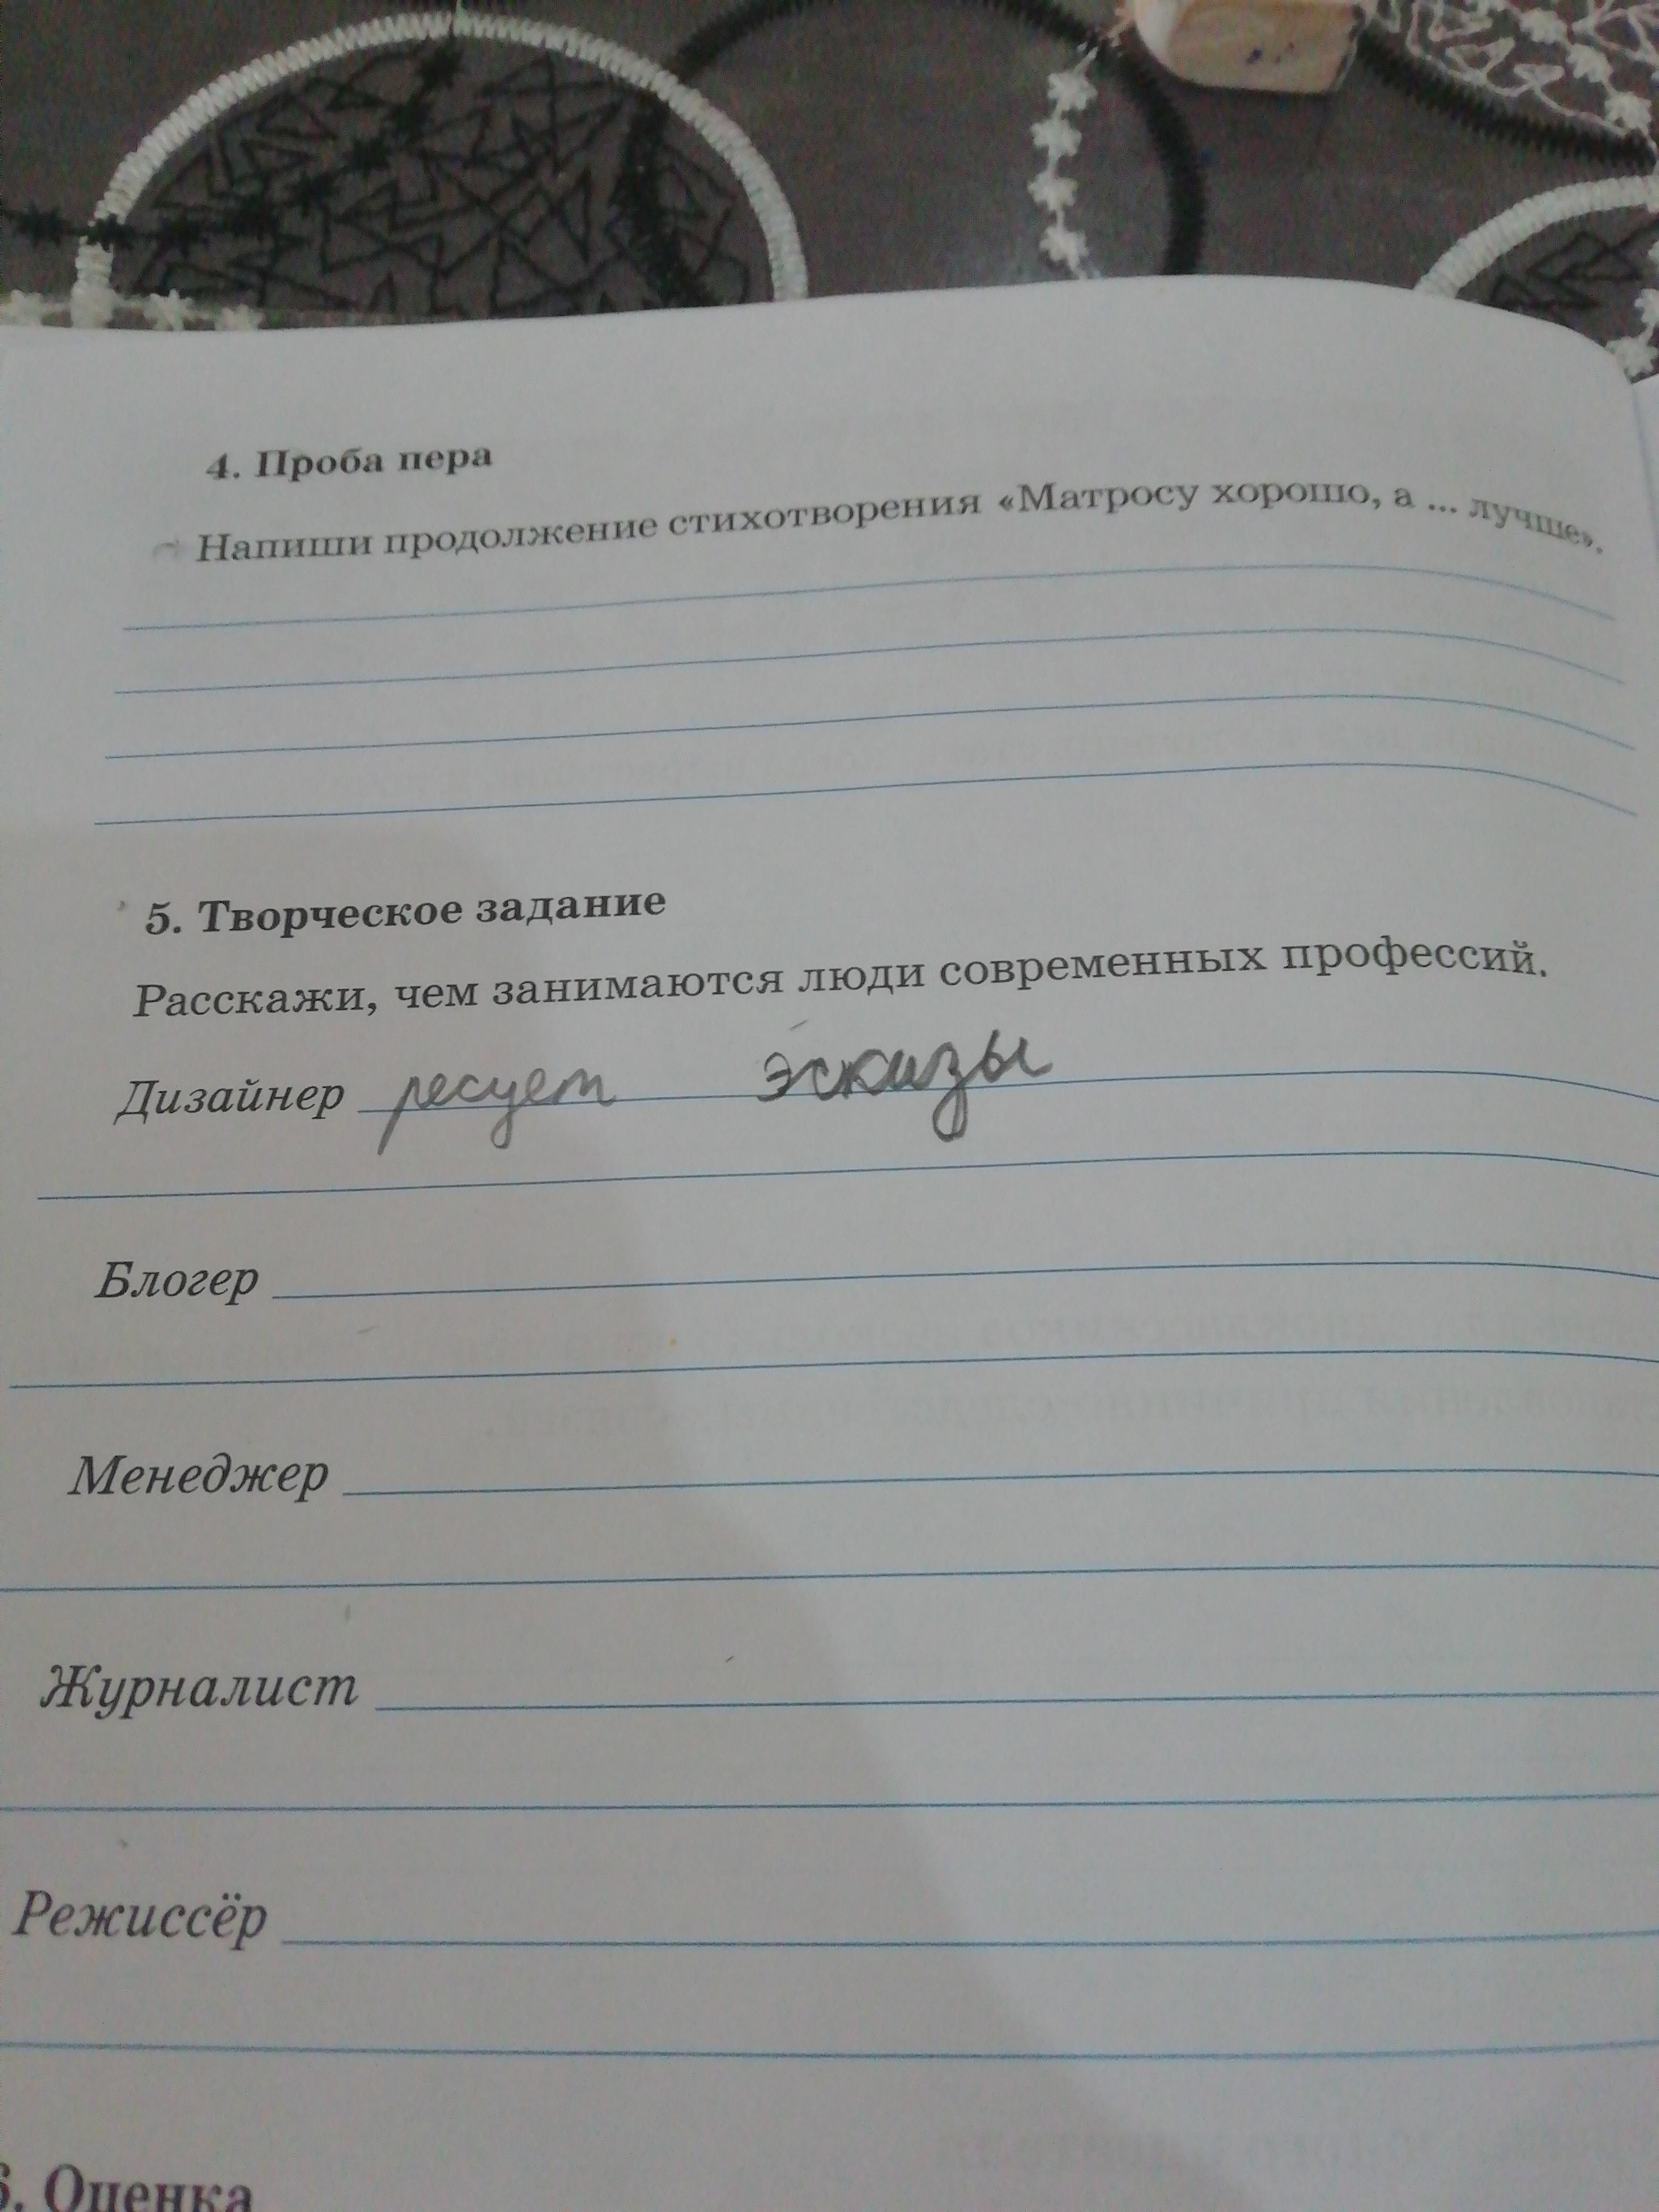 4. Проба пера
Напиши продолжение стихотворения «Матросу хорошо, а ... лучше».
5. Творческое задание
Расскажи, чем занимаются люди современных профессий.
Дизайнер ресует эскизы
Блогер
Менеджер
Журналист
Режиссёр
6. Оценка